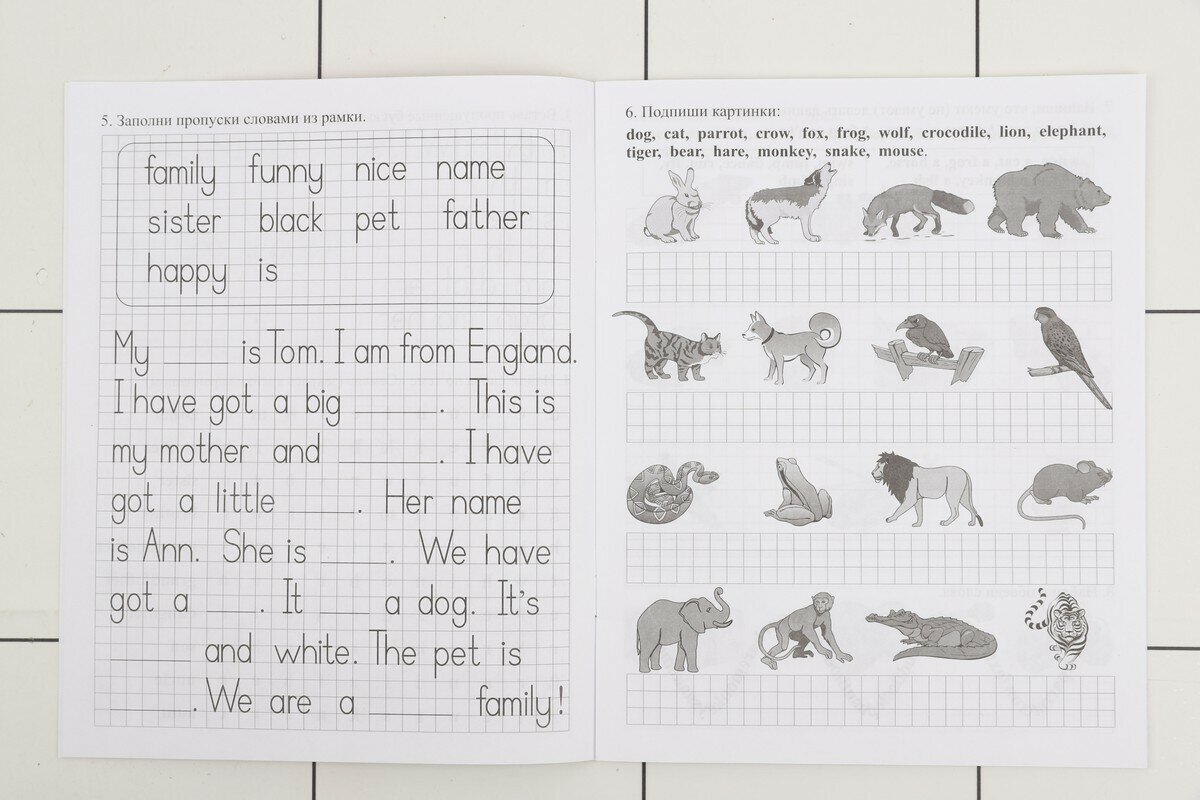 5. Заполни пропуски словами из рамки.
family funny nice name
sister black pet father
happy is
My ____ is Tom. I am from England.
I have got a big ____. This is
my mother and ____. I have
got a little ____. Her name
is Ann. She is ____. We have
got a ____. It ____ a dog. It's
____ and white. The pet is
____. We are a ____ family!
6. Подпиши картинки:
dog, cat, parrot, crow, fox, frog, wolf, crocodile, lion, elephant,
tiger, bear, hare, monkey, snake, mouse.